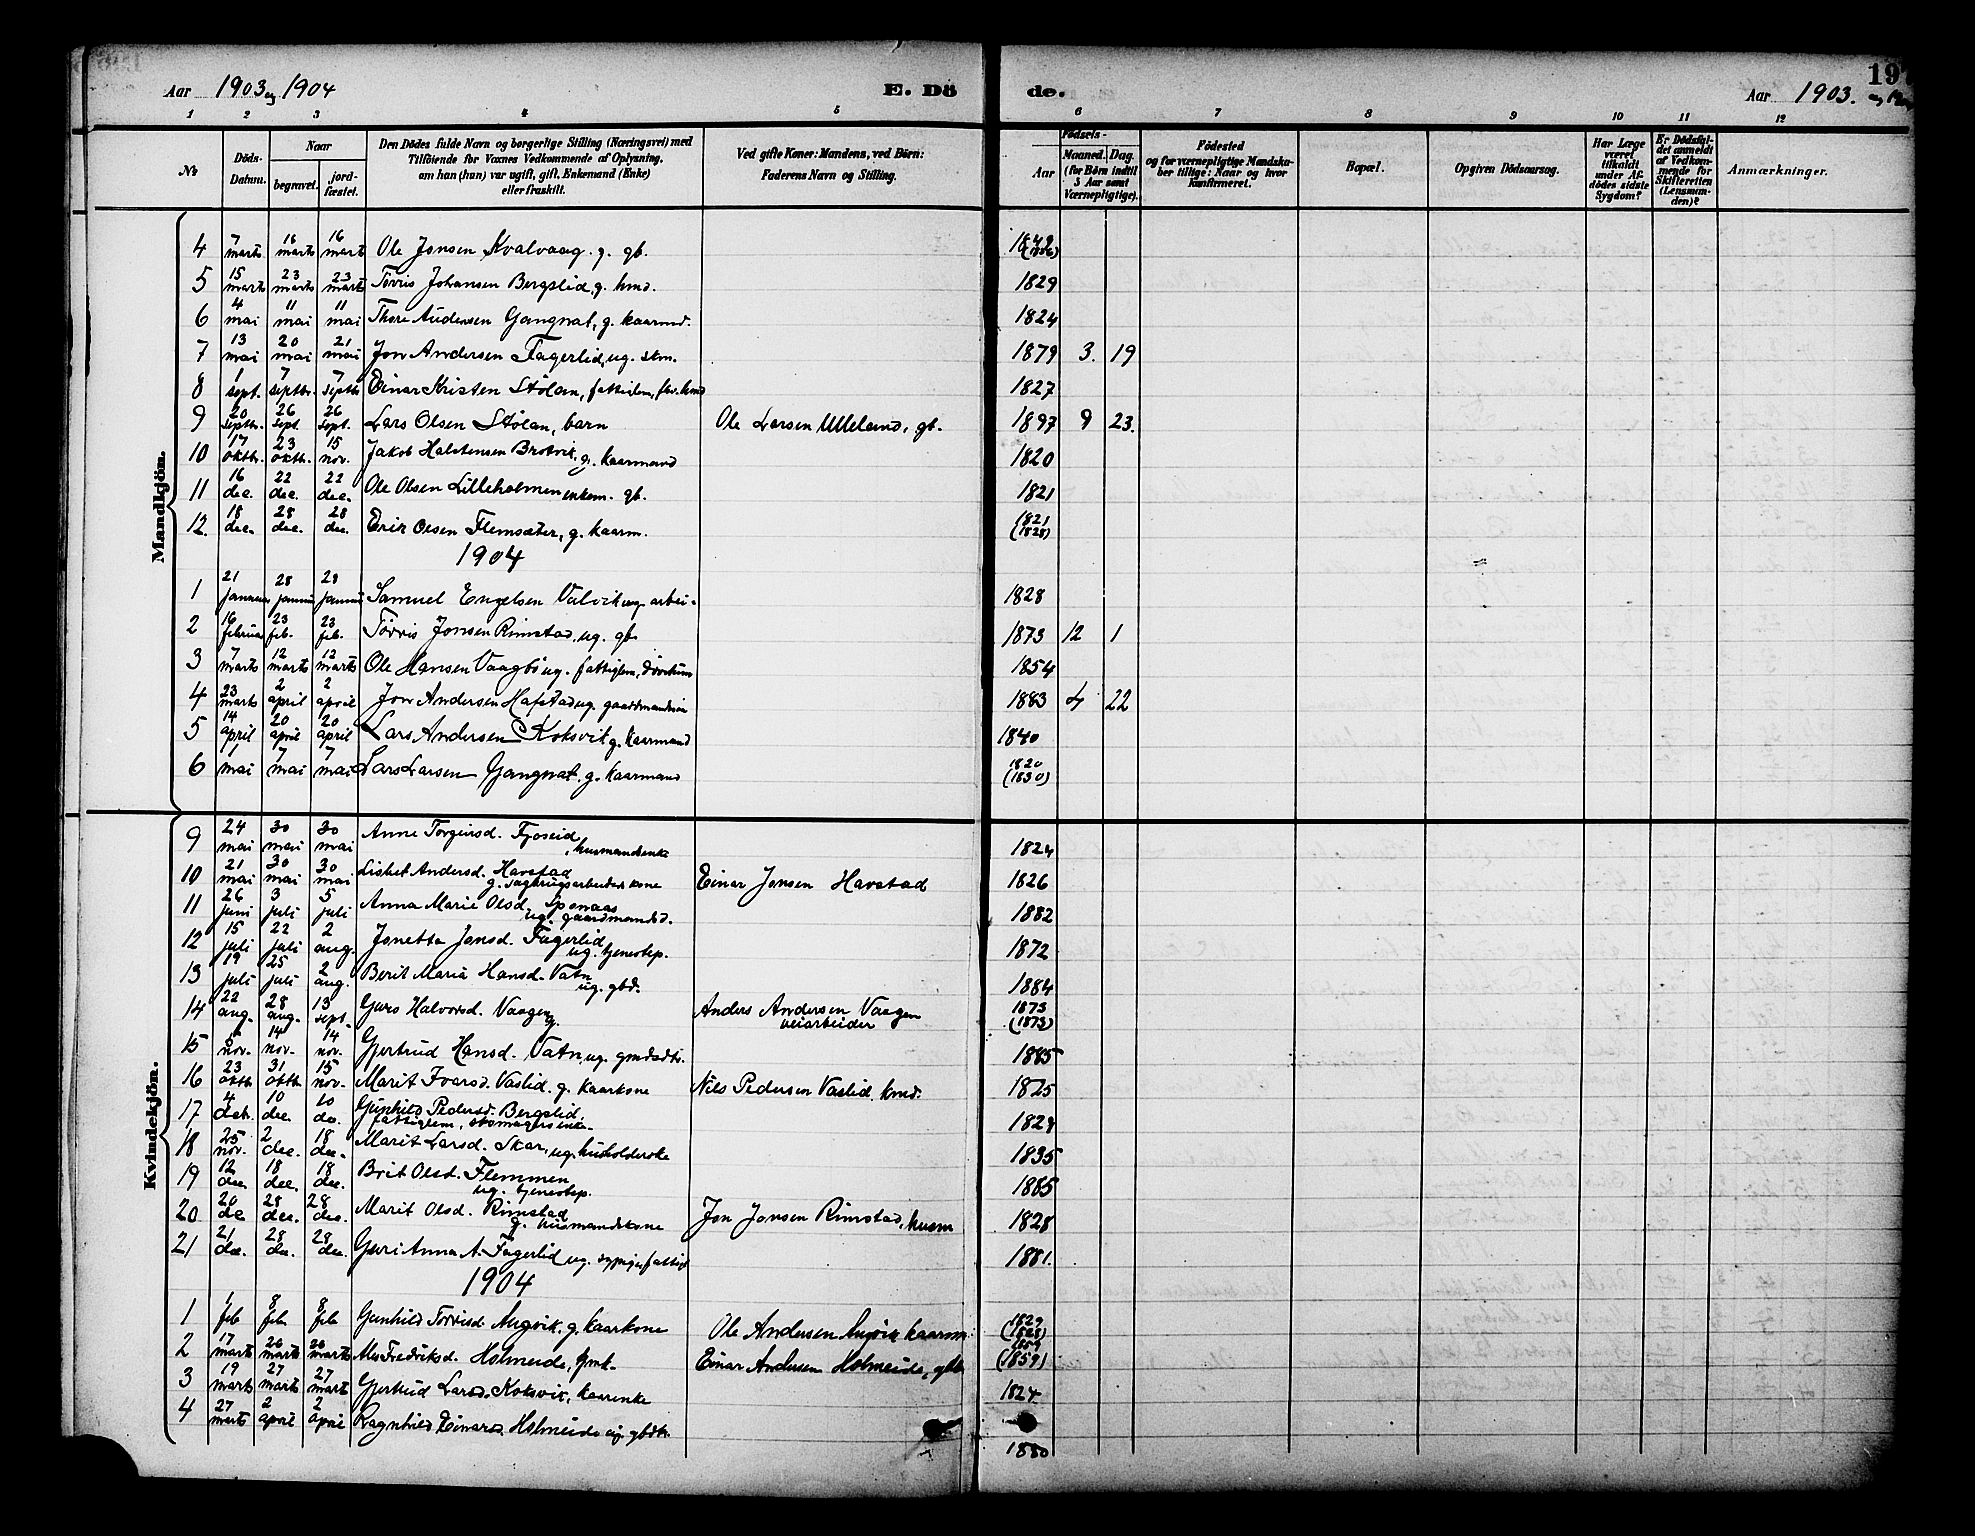 Aar 1903 og 1904 E. Dö de. Aar 1903. 197
1 2 3 4 5 6 7 8 9 10 11 12
No
Döds-Datum.
Naar
begravet. jord-fæstet.
Den Dödes fulde Navn og borgerlige Stilling (Næringsvei) med
Tilföiende for Voxnes Vedkommende af Oplysning,
om han (hun) var ugift, gift, Enkemand (Enke)
eller fraskilt.
Ved gifte Koner: Mandens, ved Börn:
Faderens Navn og Stilling.
Födsels-
Aar Maaned. Dag.
(for Börn indtil 5 Aar samt Værnepligtige).
Födested
og for værnepligtige Mandskaber tillige: Naar og hvor konfirmeret.
Bopæl.
Opgiven Dödsaarsag.
Har Læge været tilkaldt under Afdödes sidste Sygdom?
Er Dödsfaldet anmeldt af Vedkommende for Skifteretten (Lensmanden)?
Anmærkninger.
Mandkjön.
4 7 marts 16 marts 16 mart Ole Jonsen Kvalvaag. g. gb. 1849 (1856)
5 15 marts 23 marts 23 marts Torris Johansen Bergslid, g. hmd. 1829
6 4 mai 11 mai 11 mai Thore Andersen Gangnat, g. kaarmd. 1824
7 13 mai 20 mai 21 mai Jon Andersen Fagerlid, ug. 1879 3. 19
8 1 sept. 7 septbr. 7 septbr Einar Kristen Stölan, fattiglem, 1827
9 20 septbr. 26 sept. 26 sept. Lars Olsen Stölan, barn Ole Larsen Ulleland, gb. 1897 9 23.
10 17 oktbr. 23 oktb. 15 nov. Jakob Halstensen Brotvik, g. kaarmand 1820
11 16 dec. 22 dec. 22 dec. Ole Olsen Lilleholmen enkem. gb. 1821
12. 18 dec. 28 dec. 28 dec. Erik Olsen Flemsæter, g. kaarm. 1821 (1828)
1904
1 21 januar 28 januar 28 januar Samuel Engelsen Valvik ug. arbei- 1828
2 16 februar 23 feb. 23 feb. Törris Jonsen Rimstad, ug. gb. 1873 12 1
3 7 marts 12 marts 12 marts Ole Hansen Vaagbö ug. fattiglem, 1854
4 23 marts 2 april 2 april Jon Andersen Hafstad ug. 1883 4 22
5 14 april 20 april 20 april Lars Andersen Koksvik g. kaarmand 1840
6 1 mai 7 mai 7 mai Lars Larsen Gangnat. g. kaarmand 1820 (1830)
Kvindekjön.
9 24 mai 30 mai 30 mai Anne Torgersd. Fjoseid, husmandsenke 1824
10 21 mai 30 mai 30 mai Lisbet Andersd. Havstad g. sagbrugsarbeiderkone Einar Jonsen Havstad 1826
11 26 juni 3 juli 5 juli Anna Marie Olsd. Sponaas ug. gaardmandsd. 1882
12 15 juli 22 juli 2 aug. Jonetta Jonsd. Fagerlid ug. tjenestep. 1872
13 19 juli 25 juli 2 aug. Berit Maria Hansd. Vatn ug. gbd. 1884
14 22 aug. 28 aug. 13 sept. Guro Halvorsd. Vaagen g. Anders Andersen Vaagen veiarbeider 1873 (1873)
15 nov. 14 nov. 14 nov. Gjertrud Hansd. Vatn, ug. 1885
16 23 oktb. 31 oktb. 15 nov. Marit Ivarsd. Vaslid. g. kaarkone Nils Pedersen Vaslid. hmd. 1825
17 4 dec. 10 dec. 10 dec. Gunhild Pedersd. Bergslid. fattiglem, skomagersenke 1829
18 25 nov. 2 dec. 18 dec. Marit Larsd. Skar, ug. husholderske 1835
19 12 dec. 18 dec. 18 dec. Brit Olsd. Flemmen ug. tjenestep. 1885
20 20 dec 28 dec. 28 dec. Marit Olsd. Rimstad g. husmandskone Jon Jonsen Rimstad, husm 1828
21 21 dec. 28 dec. 28 dec. Guri Anna A. Fagerlid ug. 1881.
1904
1 1 feb 8 feb 8 feb Gunhild Törrisd. Angvik. g. kaarkone Ole Andersen Angvik kaarm. 1829 (1828)
2 17 marts 26 marts 26 marts Fredriksd. Holmeide, Einar Andersen Holmeide, gb 1859 (1859)
3 19 marts 27 marts 27 marts Gjertrud Larsd. Koksvik, kaarenke 1824
4 27 marts 2 april 2 april Ragnhild Einarsd. Holmeide ug. gbdtr. 1880